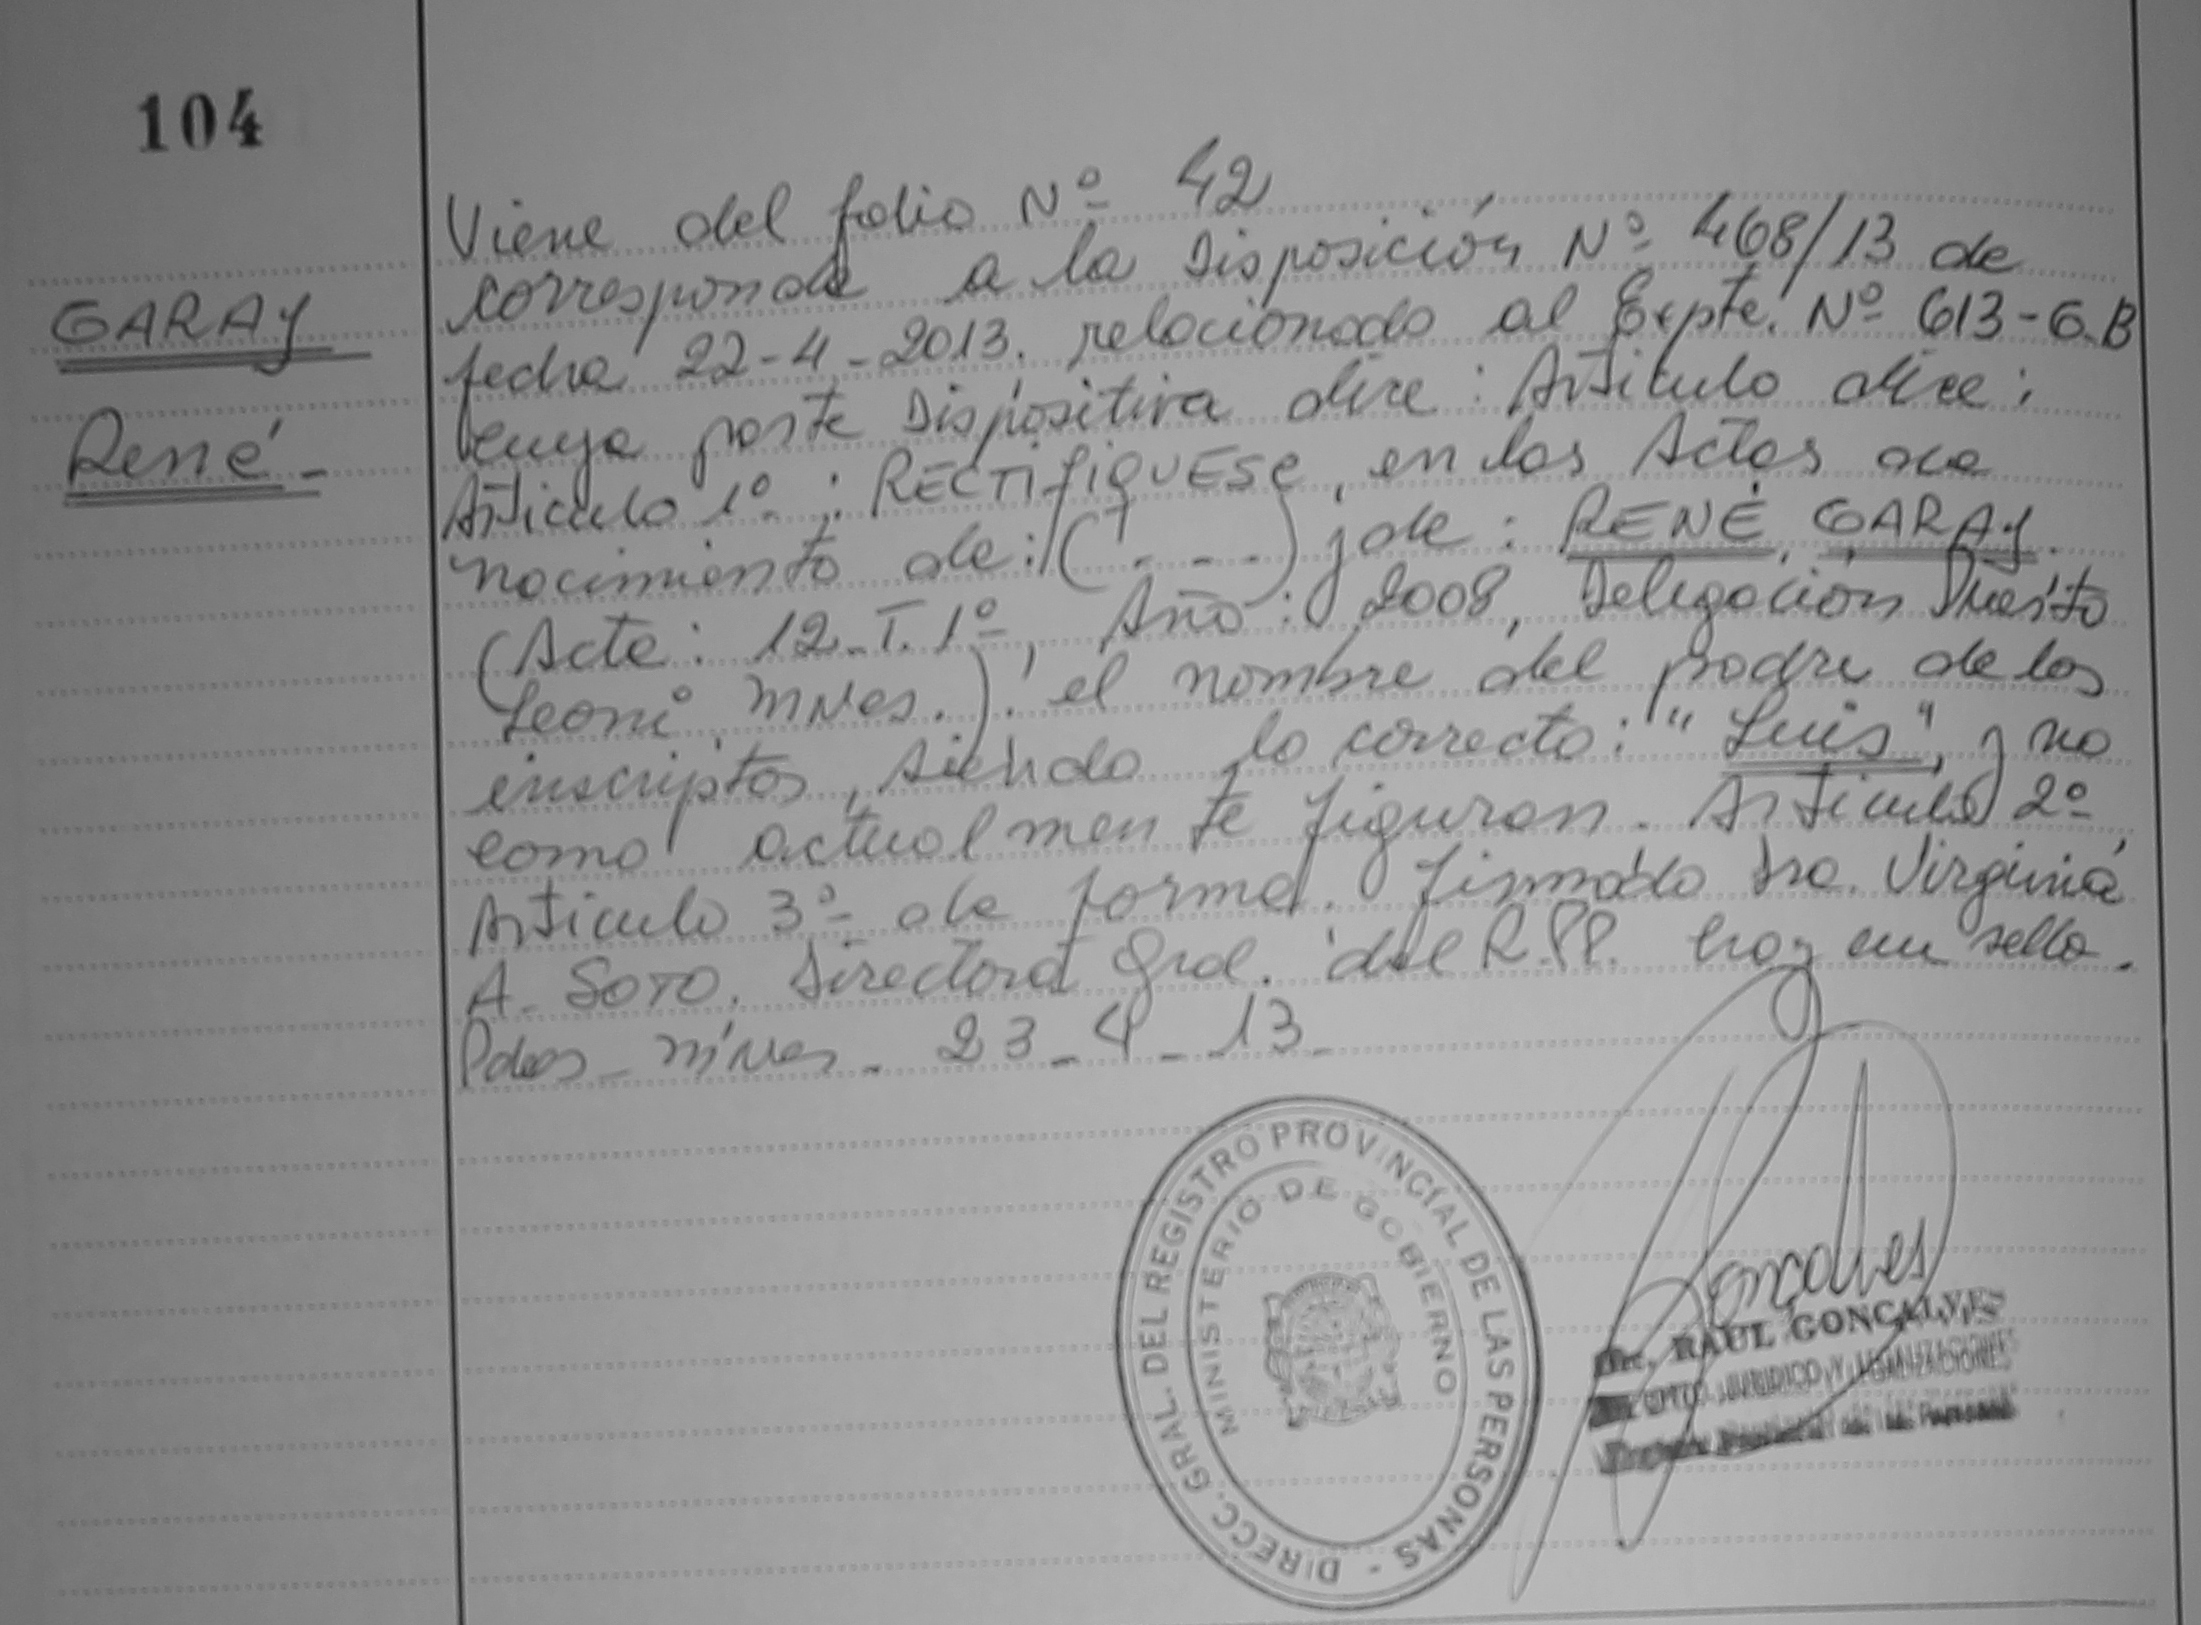 104
GARAY
René-
Viene del folio Nº 42
corresponde a la Disposición Nº 468/13 de
fecha 22-4-2013. relacionado al Expte. Nº 613-G.B
cuya parte Dispositiva dice: Artículo dice:
Artículo 1º: RECTIFIQUESE, en las Actas de
nacimiento de: (....) y de: RENÉ GARAY.
(Acta: 12-T.1º, Año: 2008, Delegación Puerto
Leoni, MNes.). el nombre del padre de los
inscriptos, siendo lo correcto: "Luis", y no
como actualmente figuran. Artículo 2º
Artículo 3º de forma. firmado Dra. Virginia
A. SOTO. Directora Gral. del R.PP. hay un sello.
Pdas- MNes. 23-4-13-
DIRECC. GRAL. DEL REGISTRO PROVINCIAL DE LAS PERSONAS -
MINISTERIO DE GOBIERNO
Goncalves
RAUL GONCALVES
JURIDICO Y LEGALIZACIONES